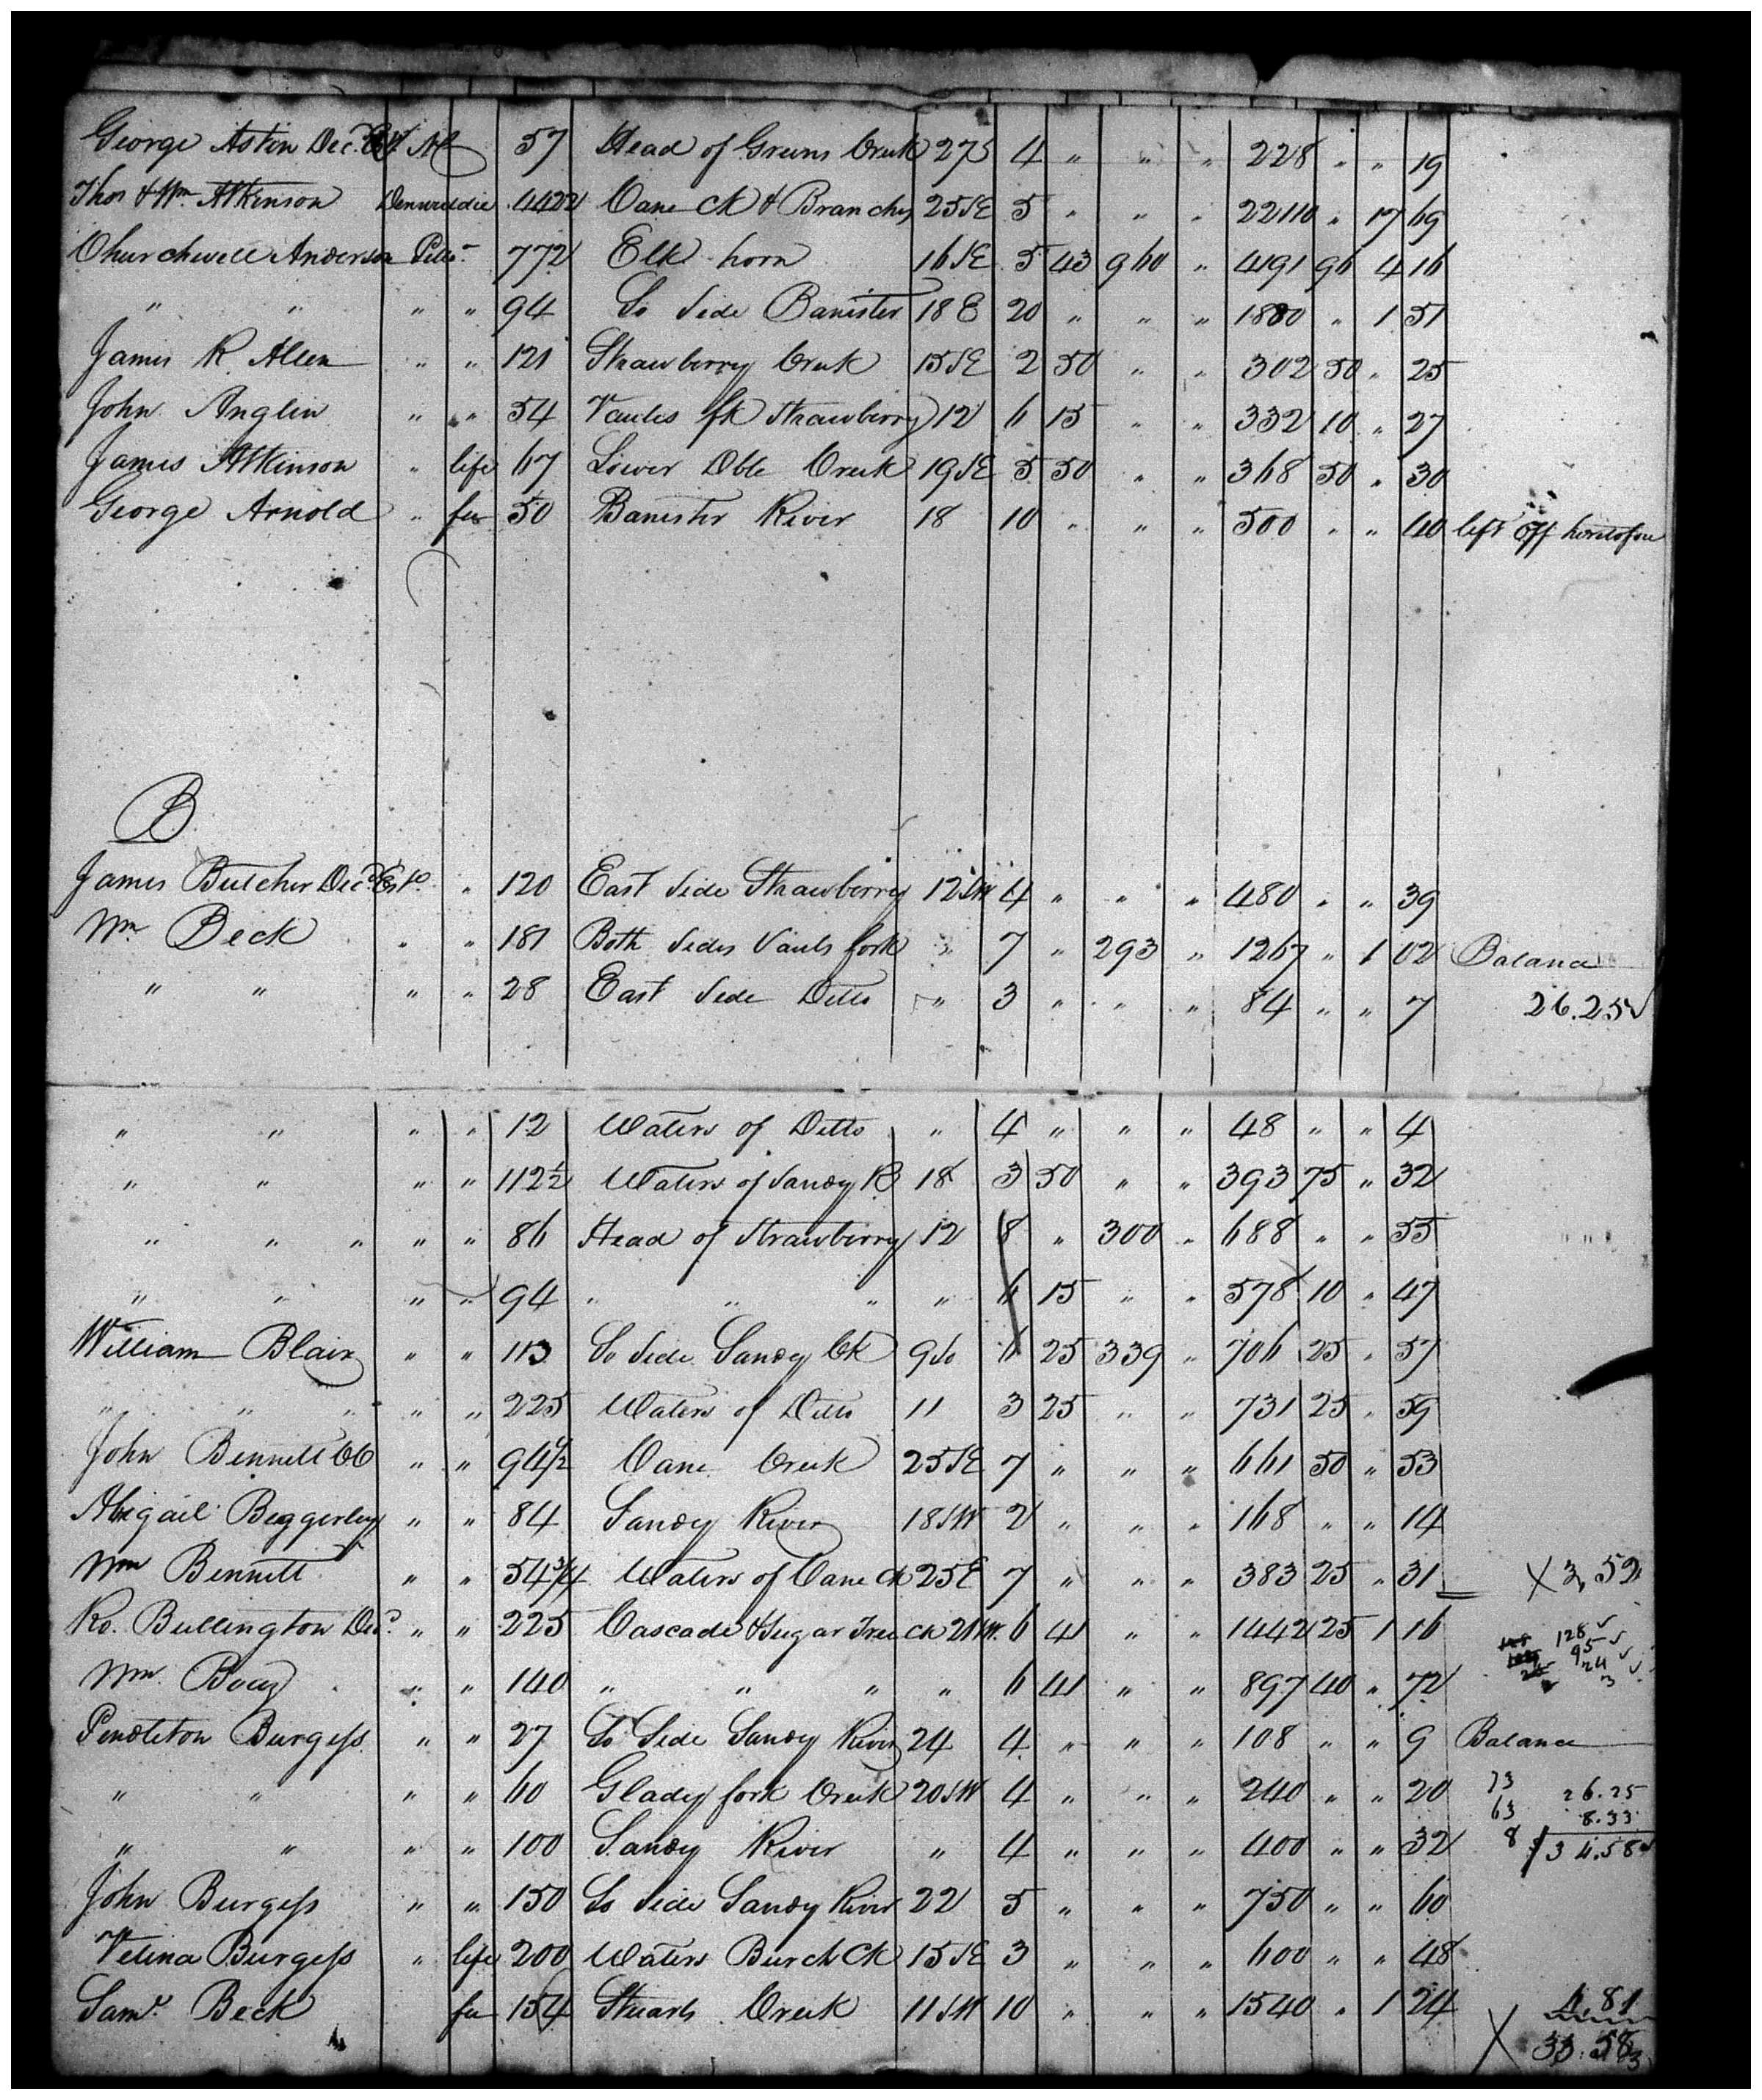 George Aston Dec.d 57 Head of Greens Creek 27 S 4 " " " 228 " " 19
Thos & Wm Atkinson Dinwiddie 4422 Cane Ck & Branches 25 SE 5 " " " 22110 " 17 69
Churchwell Anderson Pitts. 772 Elk horn 16 SE 5 43 960 " 4191 96 4 16
" " " " 94 So Side Banister 18 E 20 " " " 1880 " 1 51
James R. Allen " " 121 Strawberry Creek 15 SE 2 50 " " 302 50 " 25
John Anglin " " 54 Vaules fk Strawberry 12 6 15 " " 332 10 " 27
James Atkinson " life 67 Lower Dble Creek 19 SE 5 50 " " 368 50 " 30
George Arnold " fee 50 Banister River 18 10 " " " 500 " " 40 left off heretofore
B
James Butcher Dec.d Est.o " 120 East Side Strawberry 12 SW 4 " " " 480 " " 39
Wm Beck " " 181 Both Sides Vauls fork " 7 " 293 " 1267 " 1 02 Balance
" " " " 28 East Side Ditto " 3 " " " 84 " " 7 26.25
" " " " 12 Waters of Ditto " 4 " " " 48 " " 4
" " " " 112 1/2 Waters of Sandy R 18 3 50 " " 393 75 " 32
" " " " " 86 Head of Strawberry 12 8 " 300 " 688 " " 55
" " " " 94 " " " " 6 15 " " 578 10 " 47
William Blair " " 113 So Side Sandy Ck 9 So 6 25 339 " 706 25 " 57
" " " " " 225 Waters of Ditto 11 3 25 " " 731 25 " 59
John Bennett CC " " 94 1/2 Cane Creek 25 SE 7 " " " 661 50 " 53
Abigail Beggerley " " 84 Sandy River 18 SW 2 " " " 168 " " 14
Wm Bennett " " 54 3/4 Waters of Cane Ck 25 E 7 " " " 383 25 " 31 X 3,52
Ro. Bullington Dec.d " " 225 Cascade & Sugar Tree Ck 21 W. 6 41 " " 1442 25 1 16 128
95
24
3
Wm. Booz " " 140 " " " " 6 41 " " 897 40 " 72
Pendleton Burgess " " 27 So Side Sandy River 24 4 " " " 108 " " 9 Balance
" " " " 60 Glady fork Creek 20 SW 4 " " " 240 " " 20 73 26.25
63 8.33
" " " " 100 Sandy River " 4 " " " 400 " " 32 8 $34.58
John Burgess " " 150 So Side Sandy River 22 5 " " " 750 " " 60
Velina Burgess " life 200 Waters Burch Ck 15 SE 3 " " " 600 " " 48
Saml. Beck fee 154 Stuarts Creek 11 SW 10 " " " 1540 " 1 24
X